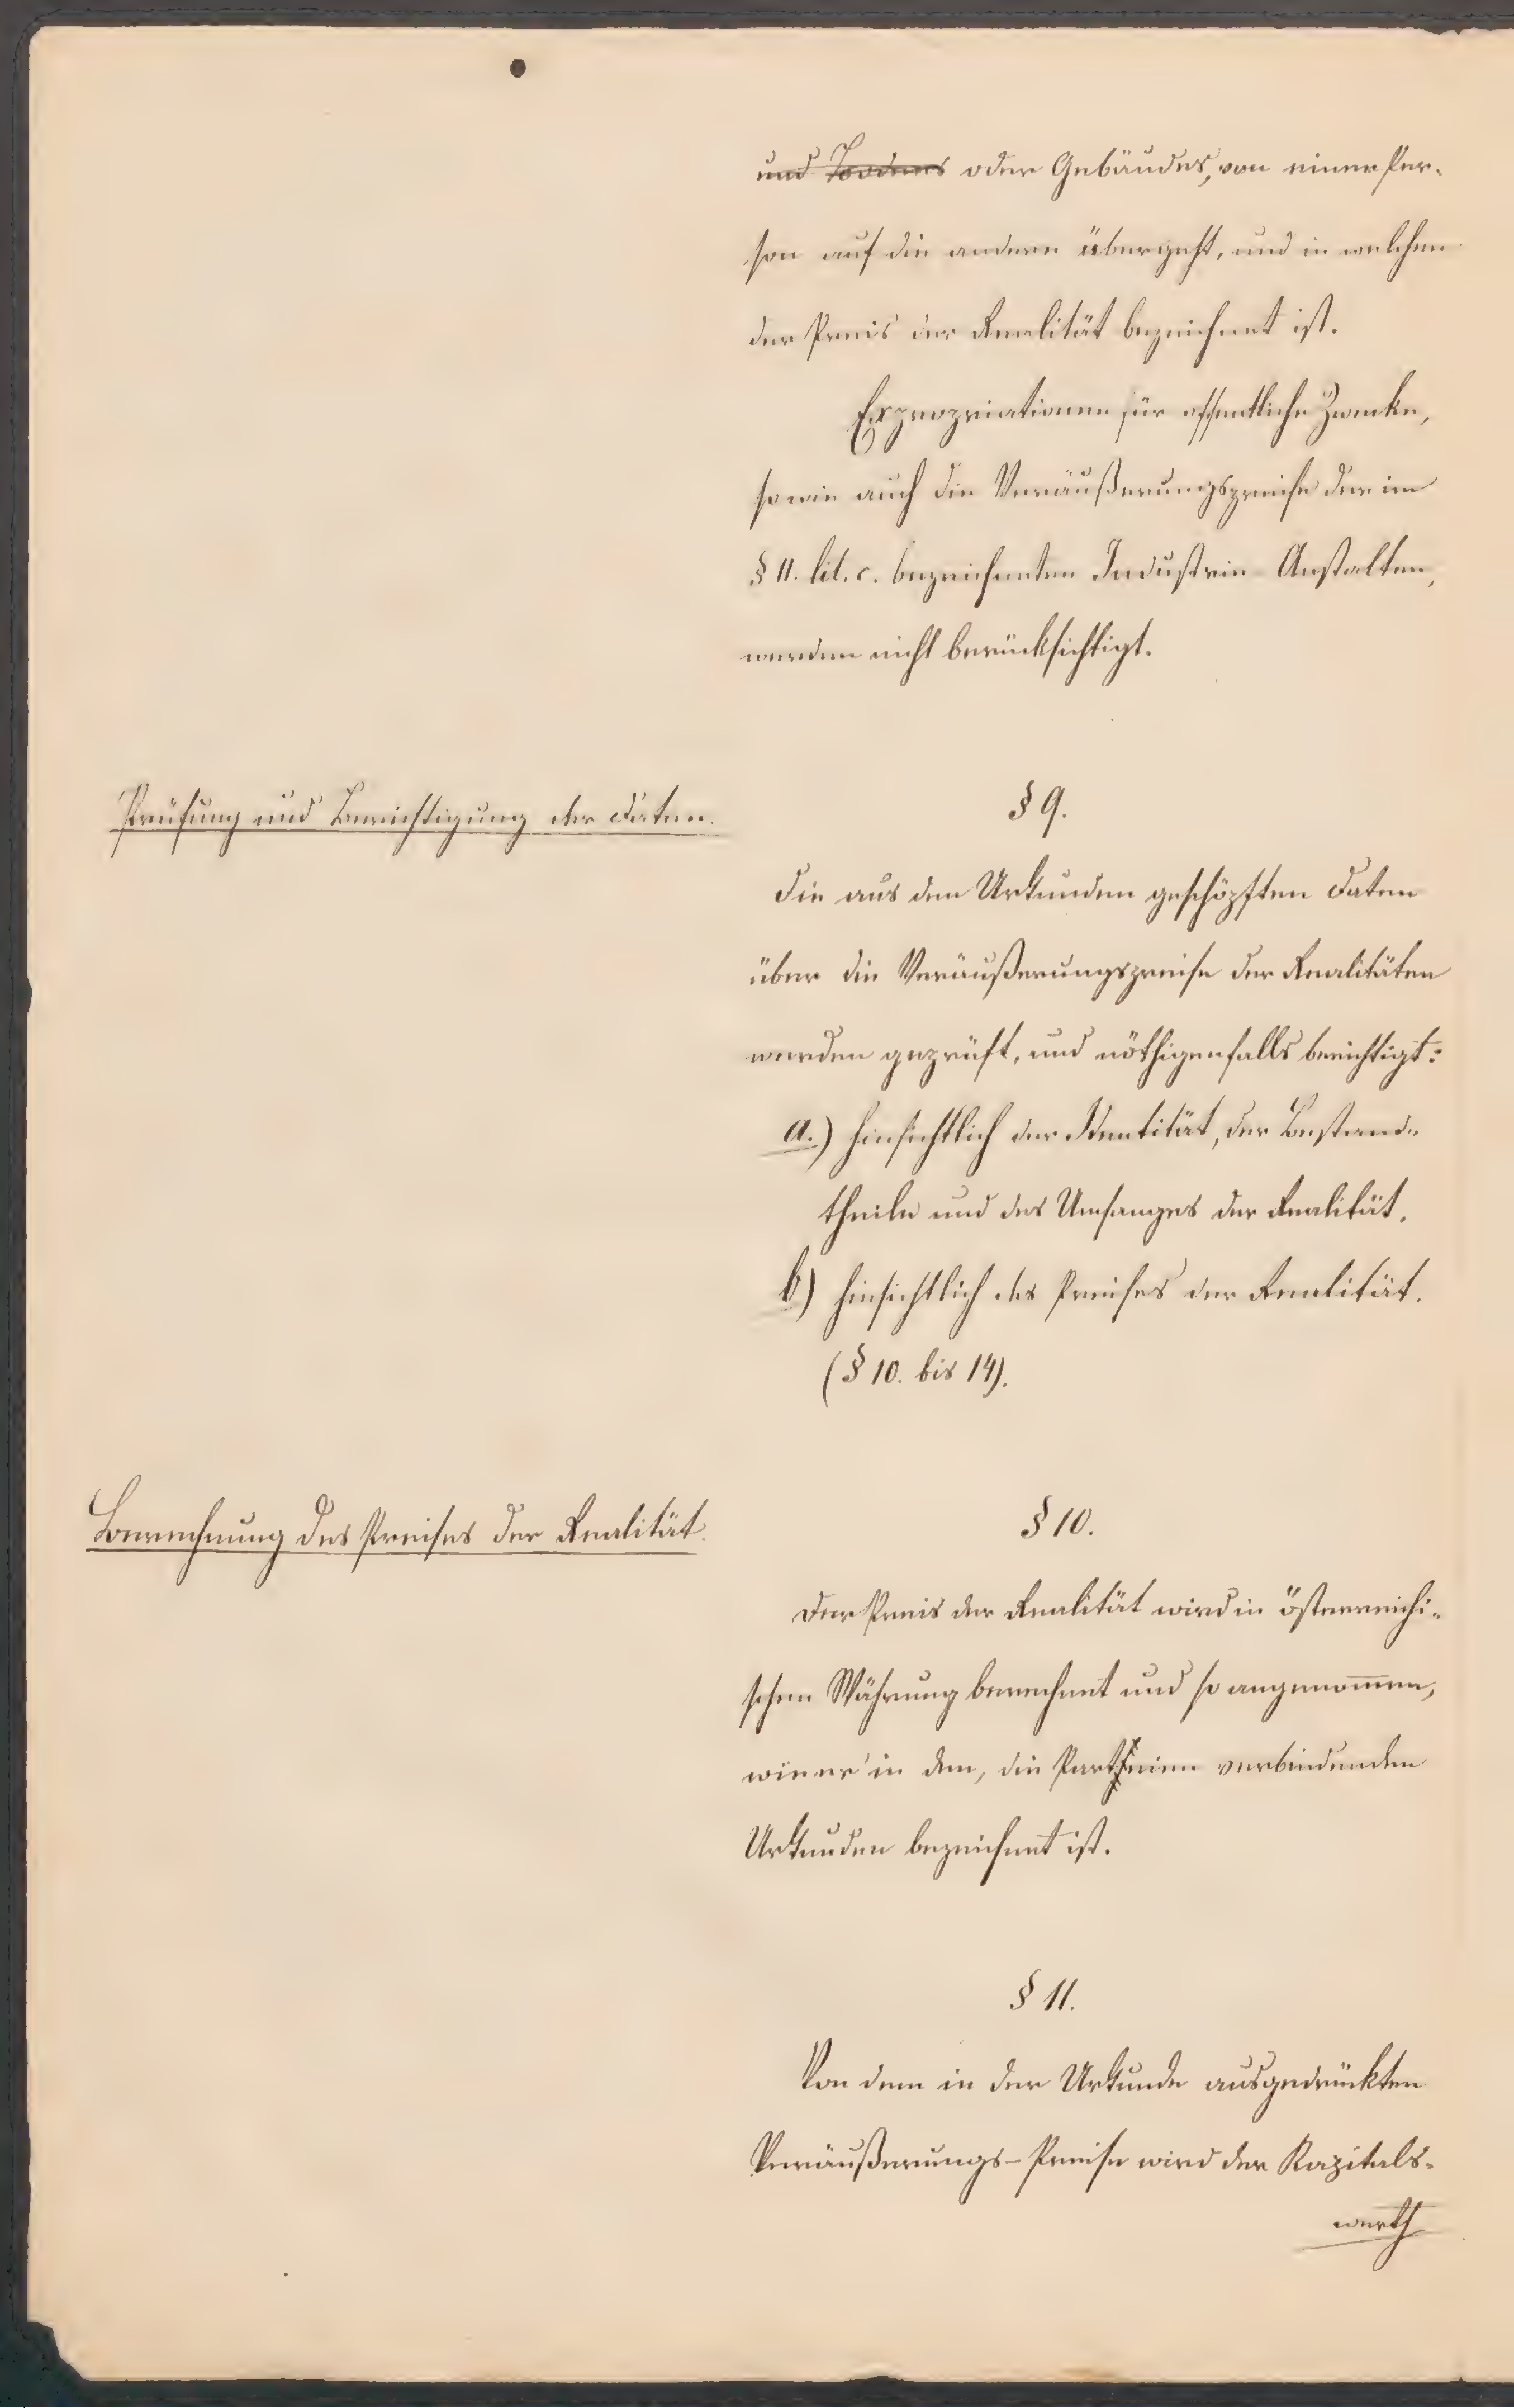 und Bodens oder Gebäudes, von einer Per-
son auf die andere übergeht, und in welchen
der Preis der Realität bezeichnet ist.
Expropriationen für öffentliche Zwecke,
so wie auch die Veräußerungspreise der im
§ 11. lit. c. bezeichneten Industrie Anstalten,
werden nicht berücksichtigt.
Prüfung und Berichtigung der Daten.
§ 9.
Die aus den Urkunden geschöpften Daten
über die Veräußerungspreise der Realitäten
werden geprüft, und nöthigenfalls berichtigt:
a.) hinsichtlich der Identität, der Bestand-
theile und des Umfanges der Realität.
b) hinsichtlich des Preises der Realität.
(§ 10. bis 14).
Berechnung des Preises der Realität.
§ 10.
Der Preis der Realität wird in österreichi-
schen Währung berechnet und so angenommen,
wie er in den, die Partheien verbindenden
Urkunden bezeichnet ist.
§ 11.
Von dem in der Urkunde ausgedrückten
Veräußerungs-Preise wird der Kapitals-
werth